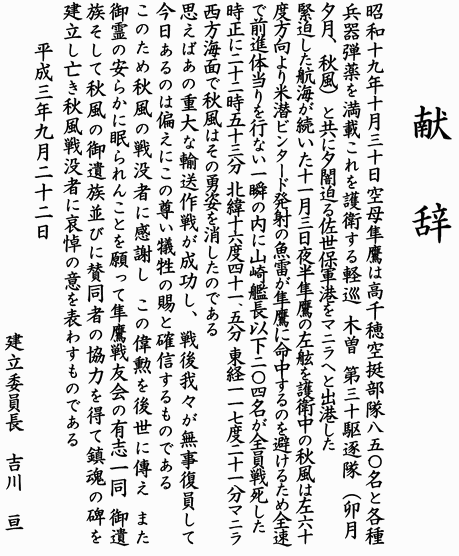 献辞
昭和十九年十月三十日空母隼鷹は高千穂空挺部隊八五〇名と各種
兵器弾薬を満載これを護衛する軽巡 木曽 第三十駆逐隊 (卯月
夕月、秋風) と共に夕闇迫る佐世保軍港をマニラへと出港した
緊迫した航海が続いた十一月三日夜半隼鷹の左舷を護衛中の秋風は左六十
度方向より米潜ピンタード発射の魚雷が隼鷹に命中するのを避けるため全速
で前進体当りを行ない一瞬の内に山崎艦長以下二〇四名が全員戦死した
時正に二十二時五十三分 北緯十六度四十一・五分 東経一一七度二十一分マニラ
西方海面で秋風はその勇姿を消したのである
思えばあの重大な輸送作戦が成功し、戦後我々が無事復員して
今日あるのは偏えにこの尊い犠牲の賜と確信するものである
このため秋風の戦没者に感謝し この偉勲を後世に傳え また
御霊の安らかに眠られんことを願って隼鷹戦友会の有志一同 御遺
族そして秋風の御遺族並びに賛同者の協力を得て鎮魂の碑を
建立し亡き秋風戦没者に哀悼の意を表わすものである
平成三年九月二十二日
建立委員長 吉川 亘